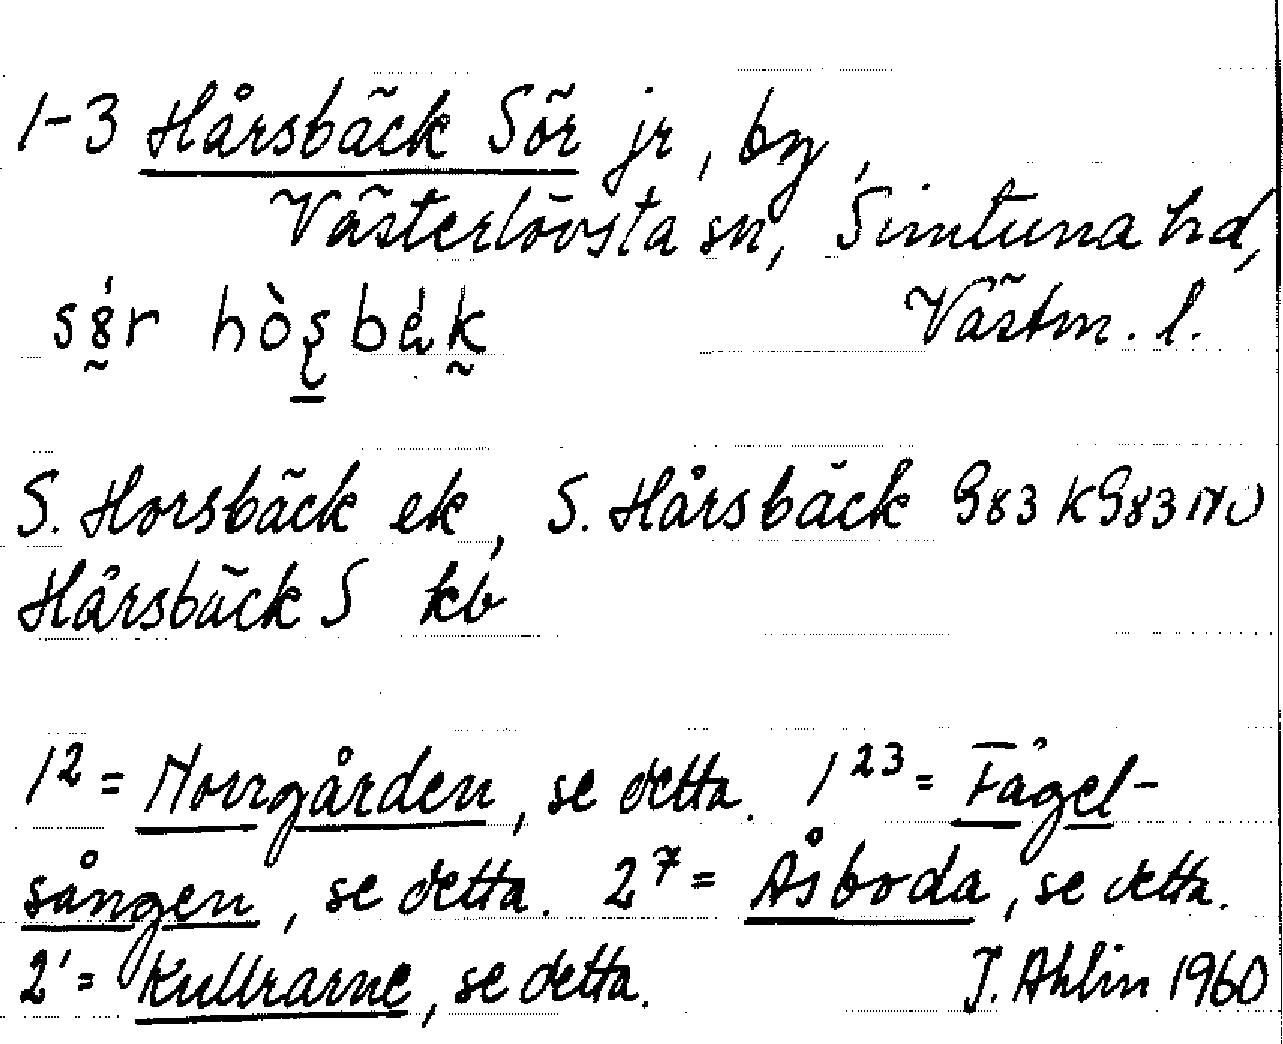 1-3 Hårsbäck Sör jr, by,
Västerlövsta sn, Simtuna hd,
Västm. l.
S. Horsbäck ek, S. Hårsbäck 983 K983 NV
Hårsbäck S kb
1² = Norrgården, se detta. 1²³ = Fågel-
sången, se detta. 2⁷ = Åsboda, se detta.
2¹ = Kullrarne, se detta. J. Ahlin 1960